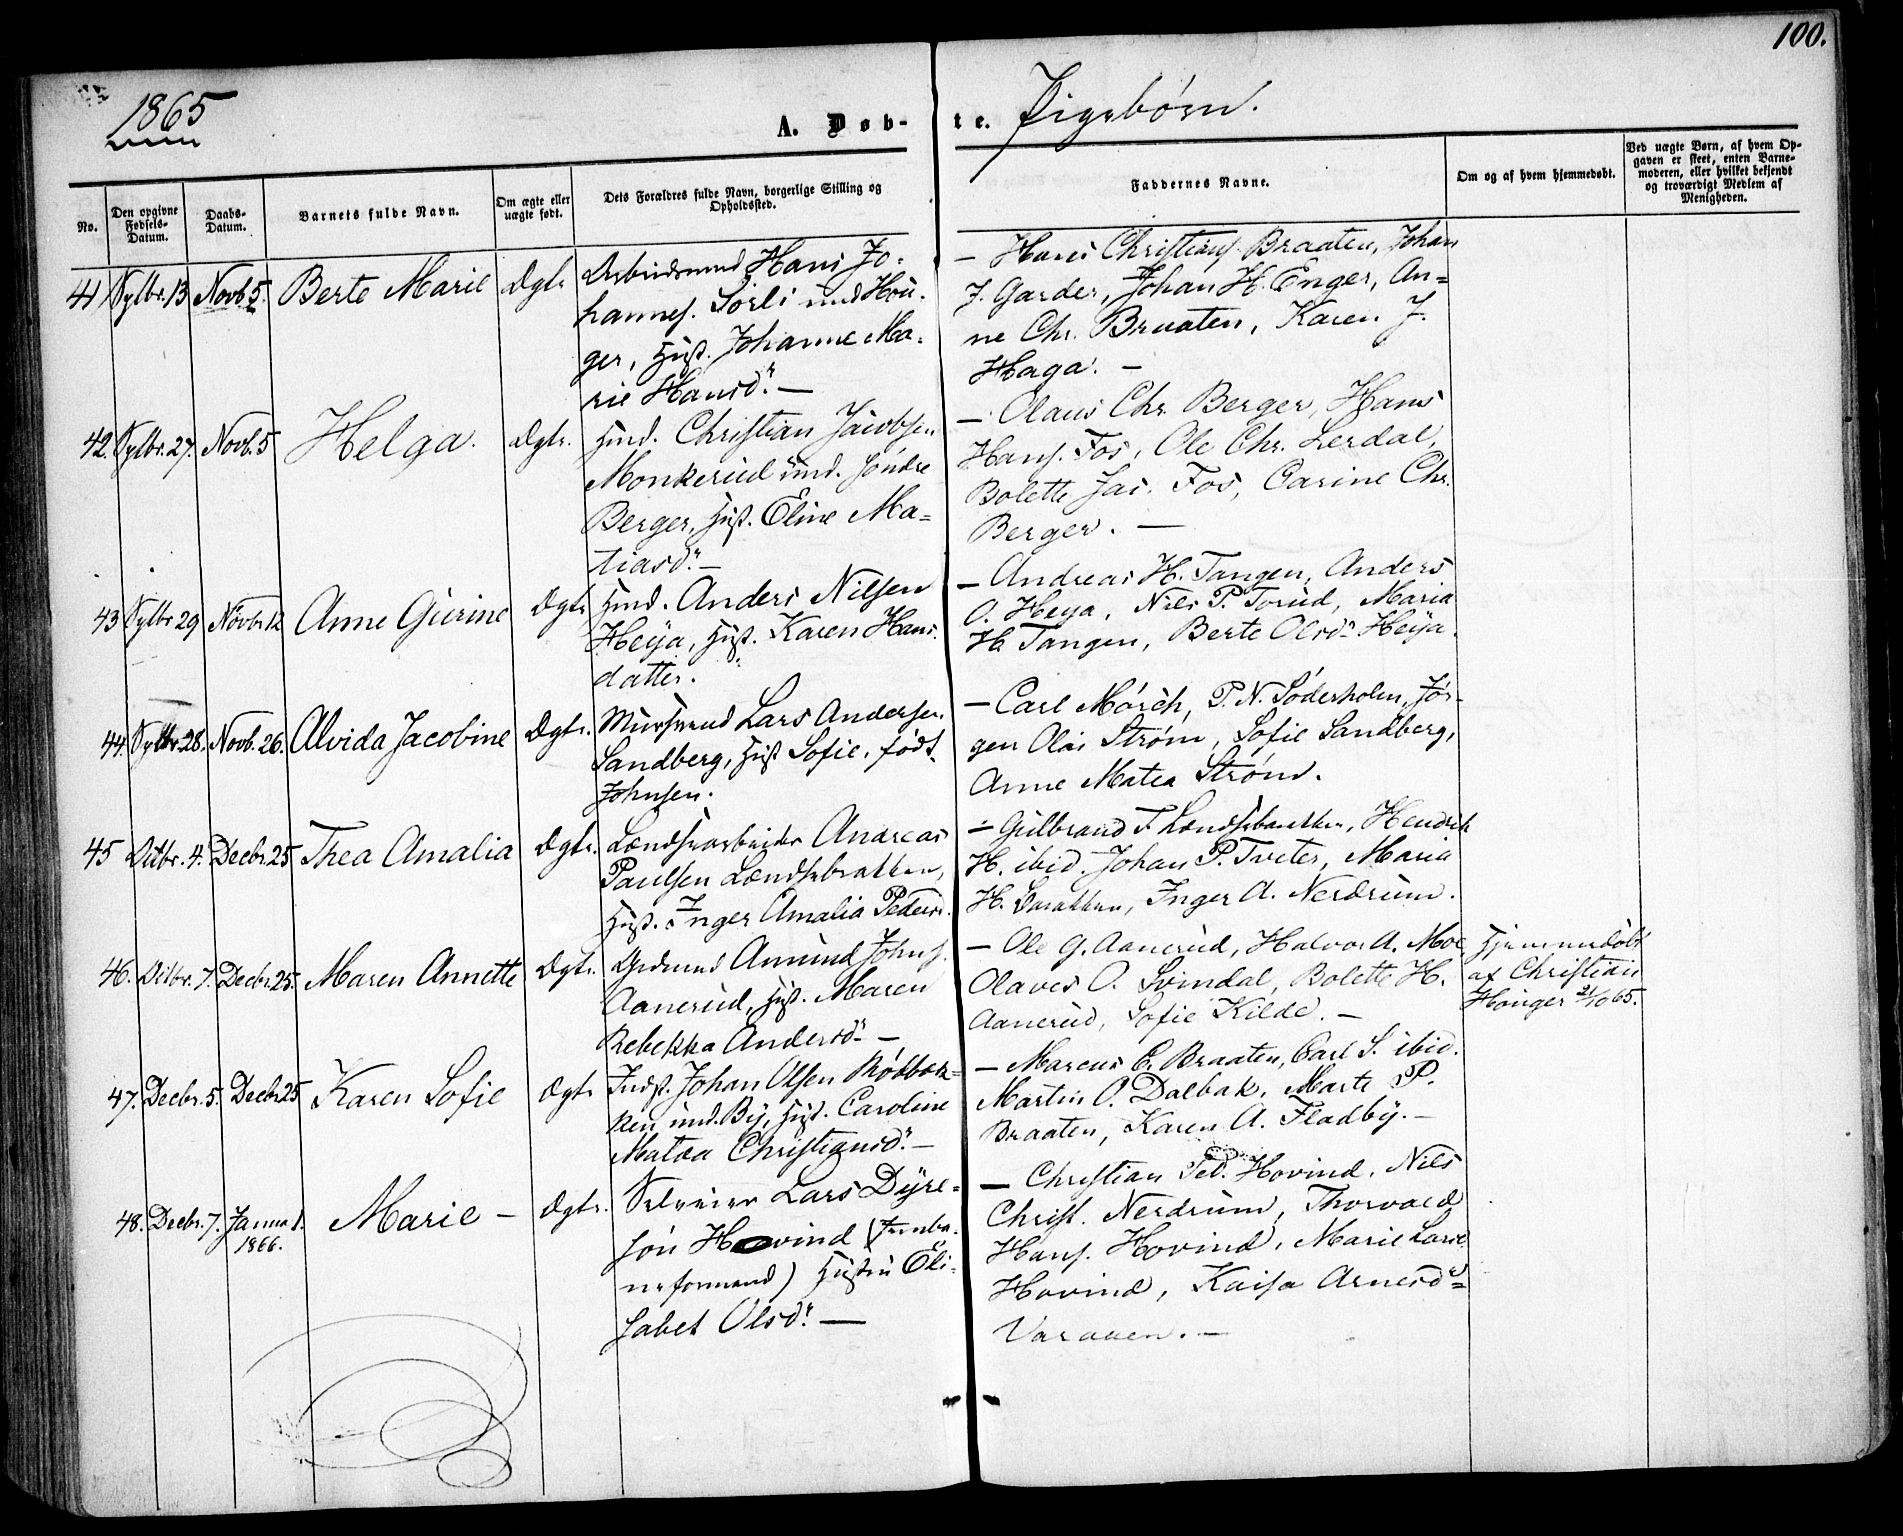 100.
1865
A. Døb-te. Pigebørn.
No.
Den opgivne Fødsels-Datum.
Daabs-Datum.
Barnets fulde Navn.
Om ægte eller uægte født.
Dets Forældres fulde Navn, borgerlige Stilling og Opholdssted.
Faddernes Navne.
Om og af hvem hjemmedøbt.
Ved uægte Børn, af hvem Opgaven er skeet, enten Barnemoderen, eller hvilket bekjendt og troværdigt Medlem af Menigheden.
41 Sptbr. 13 Novb. 5. Berte Marie Ægte
Arbeidsmd Hans Jo-
hannes. Sörli und Hou-
ger, Hust. Johanne Ma-
rie Hansd. —
— Hans Christians. Braaten, Johan
J. Garder, Johan H. Enger, An-
ne Chr. Braaten, Karen J.
Haga. —
42. Sptbr. 27. Novb. 5 Helga. Ægte.
Hmd. Christian Jacobsen
Monkerud und. söndre
Berger, Hust. Eline Ma-
tiasd. —
— Olaus Chr. Berger, Hans
Hans. Fos, Ole Chr. Lerdal,
Bolette Jac. Fos, Carine Chr.
Berger. —
43 Sptbr 29 Novbr 12 Anne Gurine Ægte
Hmd. Anders Nilsen
Heya, Hust. Karen Hans-
datter.
— Andreas H. Tangen, Anders
O. Heya, Nils P. Torud, Maria
H. Tangen, Berte Olsd. Heya.
44. Sptbr. 28. Novb. 26. Alvida Jacobine Ægte.
Lars Andersen
Sandberg, Hust Sofie, födt
Johnsen.
— Carl Mörch, P. N. Söderholm, Jör-
gen Olai Ström, Sofie Sandberg,
Anne Matea Ström.
45 Octbr. 4. Decbr. 25 Thea Amalia Ægte.
Lændsearbeider Andreas
Paulsen Lændsebakken,
Hust. Inger Amalia Pedersd.
— Gulbrand F Lændsebakken, Hendrik
H. ibid. Johan P. Tveter, Maria
H. Barakken, Inger A. Nerdrum.
46. Octbr. 7. Decbr. 25. Maren Annette Ægte.
Grdmnd Amund Johns.
Aanerud, Hust. Maren
Rebekka Andersd. —
— Ole G. Aanerud, Halvor A. Moe,
Olaves O. Svindal, Bolette H.
Aanerud, Sofie Kilde. —
Hjemmedöbt
af Christian
Houger 21/10 65.
47. Decbr. 5. Decbr 25 Karen Sofie Ægte
Indst. Johan Olsen Rödbæk-
ken und. By, Hust. Caroline
Matea Christiansd. —
— Marcus E. Braaten, Carl S. ibid.
Martin O. Dalbak, Marte P.
Braaten, Karen A. Fladby. —
48. Decbr. 7. Januar 1. 1866. Marie — Ægte.
Selveier Lars Dyre-
sön Hovind (Jernba-
neformand) Hustru Eli-
sabet Olsd. —
— Christian Ped. Hovind, Nils
Christ. Nerdrum, Thorvald
Hans. Hovind, Marie Larsd.
Hovind, Kaisa Arnesd.
Varaaen. —